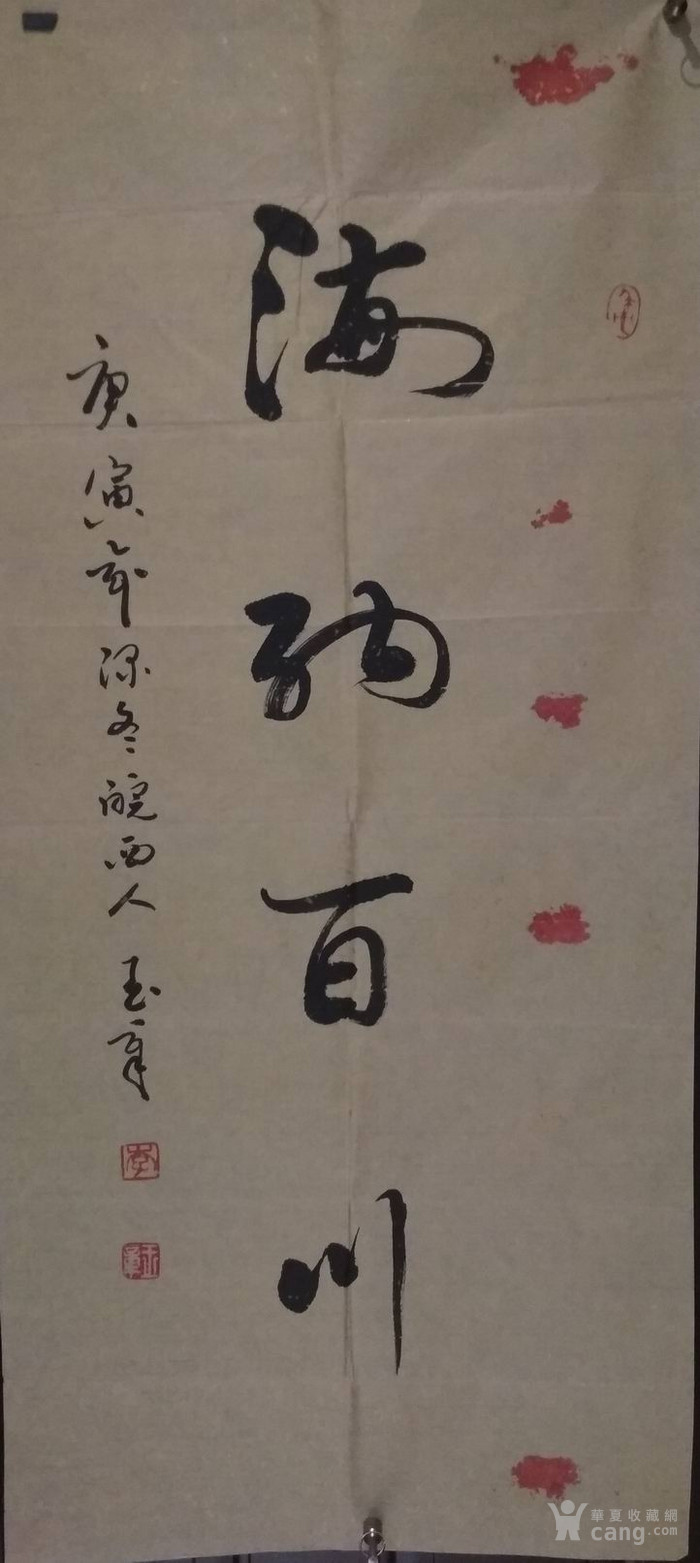 海纳百川
庚寅年深冬皖西人 玉章
李
玉章
華夏收藏網
cang.com